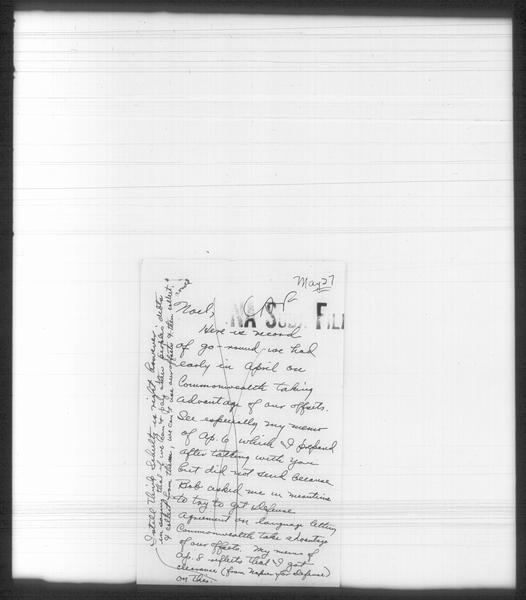 May 27
Noel,
NA SUBJ. FILE
Here is record
of go-round we had
early in April on
Commonwealth taking
advantage of our offsets.
See especially my memo
of Ap. 6 which I prepared
after talking with you
but did not send because
Bob asked me in meantime
to try to get Defense
agreement on language letting
Commonwealth take advantage
of our offsets. My memo of
Ap. 8 reflects that I got
clearance (from Napier for Defense)
on this.
I still think Schultz is right however
in saying that if we can't pay other people's debts
& collect from them, we can't use our offsets & then collect.